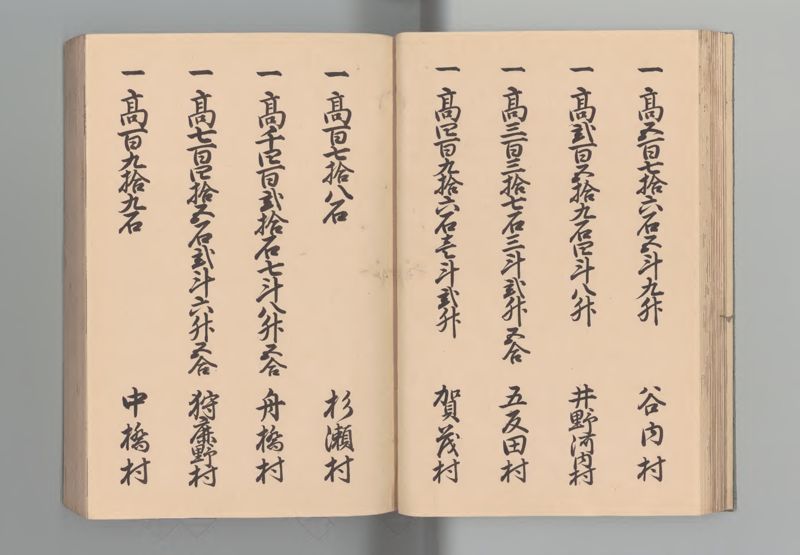 一 高五百七拾六石五斗九升 谷内村
一 高弐百五拾九石四斗八升 井野河内村
一 高三百三拾七石三斗弐升五合 五反田村
一 高四百九拾六石壱斗弐升 賀茂村
一 高百七拾八石 杉瀬村
一 高千四百弐拾石七斗八升五合 舟橋村
一 高七百四拾五石弐斗六升五合 狩鹿野村
一 高百九拾九石 中橋村